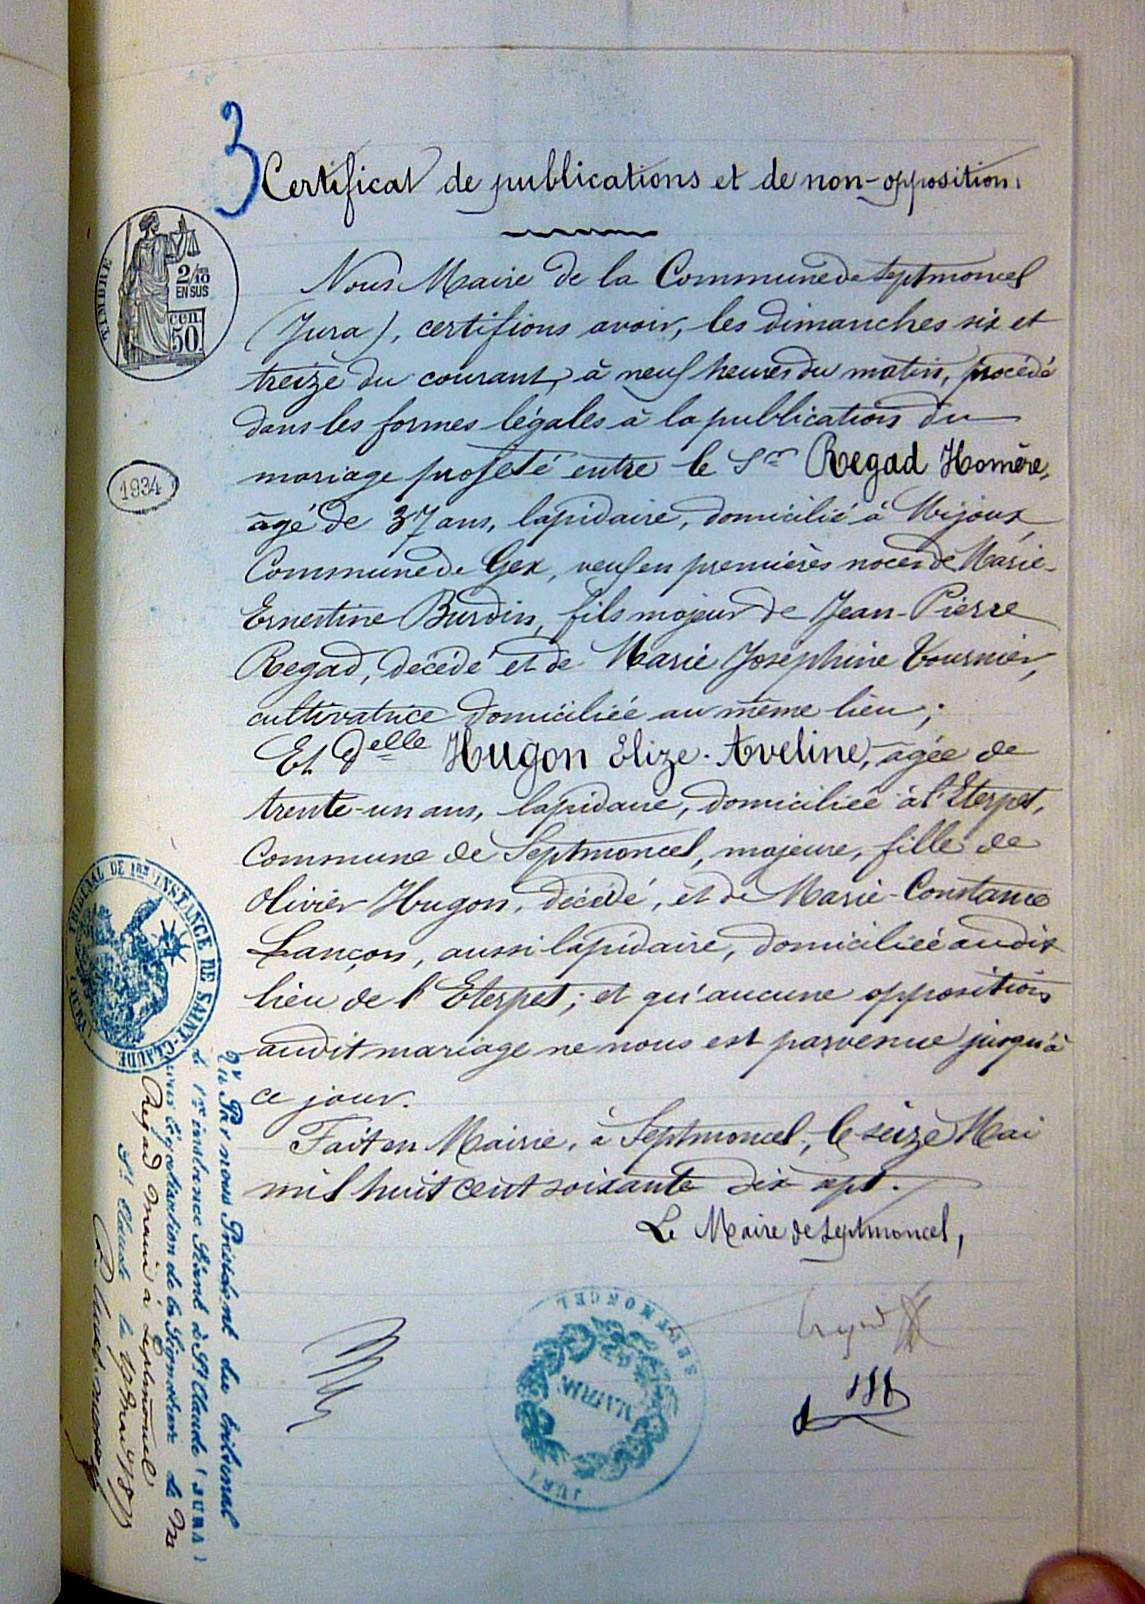 3
Certificat de publications et de non-opposition.
TIMBRE
2/10
EN SUS
50
Nous Maire de la Commune de Septmoncel
(Jura), certifions avoir, les dimanches six et
treize du courant, à neuf heures du matin, procédé
dans les formes légales à la publication du
mariage projeté entre le Sr Regad Homère,
âgé de 37 ans, lapidaire, domicilié à Mijoux
Commune de Gex, veuf en premières noces de Marie-
Ernestine Burdin, fils majeur de Jean-Pierre
Regad, décédé et de Marie Joséphine Tournier,
cultivatrice domiciliée au même lieu;
Et Delle Hugon Elize-Aveline, âgée de
trente-un ans, lapidaire, domiciliée à l'Eterpet,
Commune de Septmoncel, majeure, fille de
Olivier Hugon, décédé, et de Marie-Constance
Lançon, aussi lapidaire, domiciliée audit
lieu de l'Eterpet; et qu'aucune opposition
audit mariage ne nous est parvenue jusqu'à
ce jour.
Fait en Mairie, à Septmoncel, le seize Mai
mil huit cent soixante dix sept.
Le Maire de Septmoncel,
1934
TRIBUNAL DE 1RE INSTANCE DE SAINT-CLAUDE (JURA)
Vu Par nous Président du tribunal
de 1re instance Séant à St Claude (JURA)
pour légalisation de la Signature de Mr
Regad maire à Septmoncel
St Claude le
SEPTMONCEL
MAIRIE
JURA